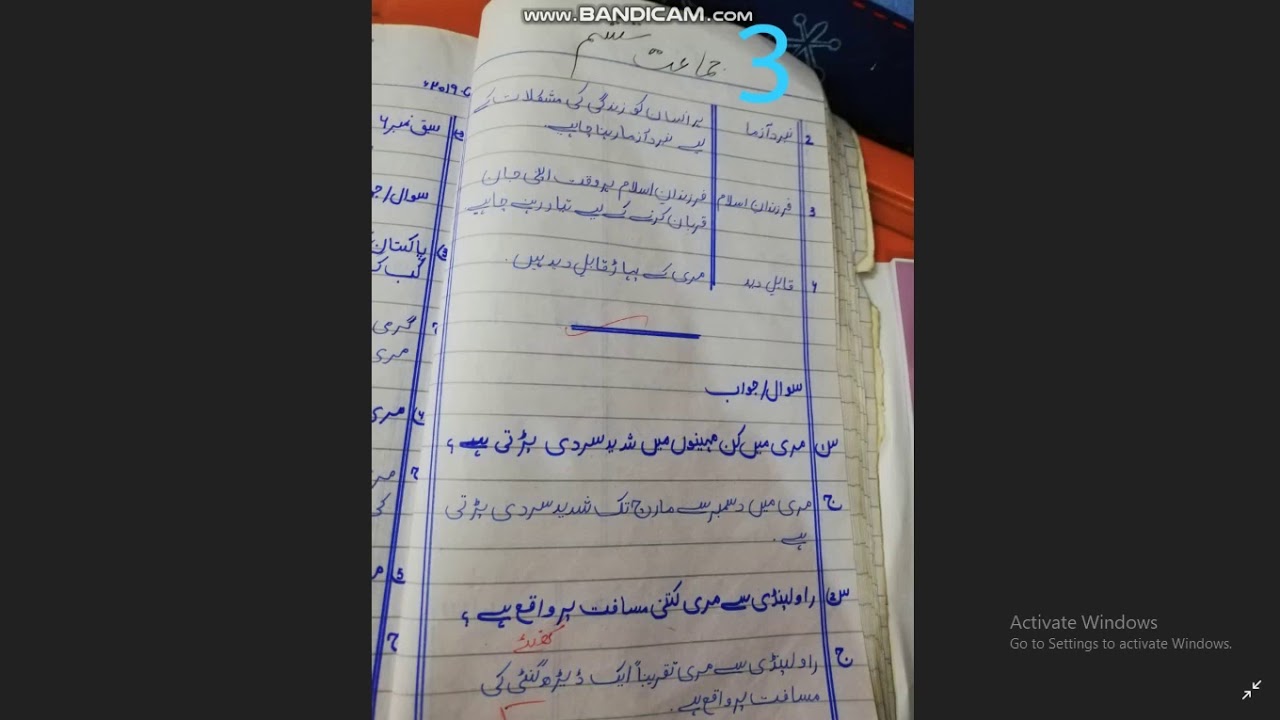 www.BANDICAM.com
جماعت ششم
3
2 نبرد آزما ہر انسان کو زندگی کی مشکلات کے
لیے نبرد آزما رہنا چاہیے۔
3 فرزندانِ اسلام فرزندانِ اسلام ہر وقت اپنی جان
قربان کرنے کے لیے تیار رہنے چاہیے
قابلِ دید مری کے پہاڑ قابلِ دید ہیں۔
سوال/جواب
س مری میں کن مہینوں میں شدید سردی پڑتی ہے؟
ج مری میں دسمبر سے مارچ تک شدید سردی پڑتی
ہے۔
س راولپنڈی سے مری کتنی مسافت پر واقع ہے؟
گھنٹے
ج راولپنڈی سے مری تقریباً ایک ڈیڑھ گنٹی کی
مسافت پر واقع ہے۔
۲۰۱۹ء
سبق نمبر ۶
سوال/جو
پاکستان
کب ک
گری
مری
مری
مر
کی
Activate Windows
Go to Settings to activate Windows.